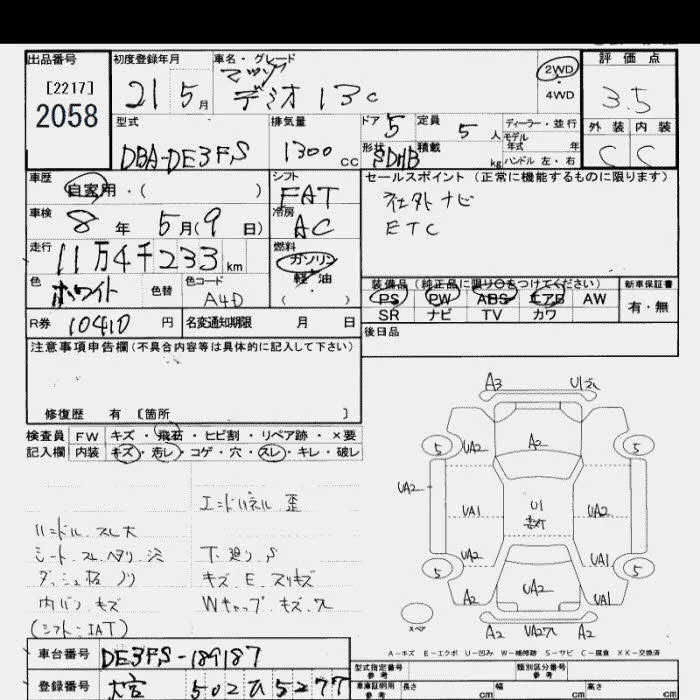 出品番号
[2217]
2058
初度登録年月
21 5月
車名・グレード
マツダ
デミオ 13C
2WD
4WD
評価点
3.5
外装 内装
C C
型式
DBA-DE3FS
排気量
1300 cc
ドア 5
定員 5人
ディーラー・並行
モデル年式 年
形状 5DHB
積載 kg
ハンドル 左・右
車歴
自家用・( )
シフト
FAT
セールスポイント (正常に機能するものに限ります)
社外ナビ
ETC
車検
8年 5月(9日)
冷房
AC
走行
11万4千233km
燃料
ガソリン
軽・油
( )
色
ホワイト
色替
色コード
A4D
装備品 (純正品に限り○をつけてください)
新車保証書
PS PW ABS エアB AW
有・無
SR ナビ TV カワ
R券 10410 円
名変通知期限 月 日
後日品
注意事項申告欄 (不具合内容等は具体的に記入して下さい)
修復歴 有 [箇所 ]
検査員記入欄
FW キズ・飛石・ヒビ割・リペア跡・×要
内装 キズ・汚レ・コゲ・穴・スレ・キレ・破レ
エンドパネル 歪
ハンドル スレ大
シート スレ ヘタリ
下廻り S
ダッシュ板 ノリ
キズ・E・スリキズ
内バン キズ
Wキャップ キズ・ワレ
(シフト・IAT)
A3 U1
5 UA2 A2 5
UA2 UA1 U1 UA2
UA2 UA1
5 A2 UA2 UA1 5
スペア
A2 A2
A-キズ E-エクボ U-凹み W-補修跡 S-サビ C-腐食 XX-交換済
車台番号 DE3FS-189187
登録番号 大宮 502 ひ 5277
型式指定番号 参考
類別区分番号 参考
車庫証明用 参考
長さ cm 幅 cm 高さ cm